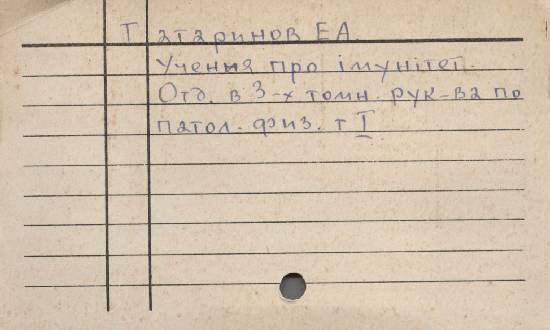 Татаринов Е А.
Учення про імунітет.
Отд. в 3-х томн. рук-ва по
патол. физ. т I